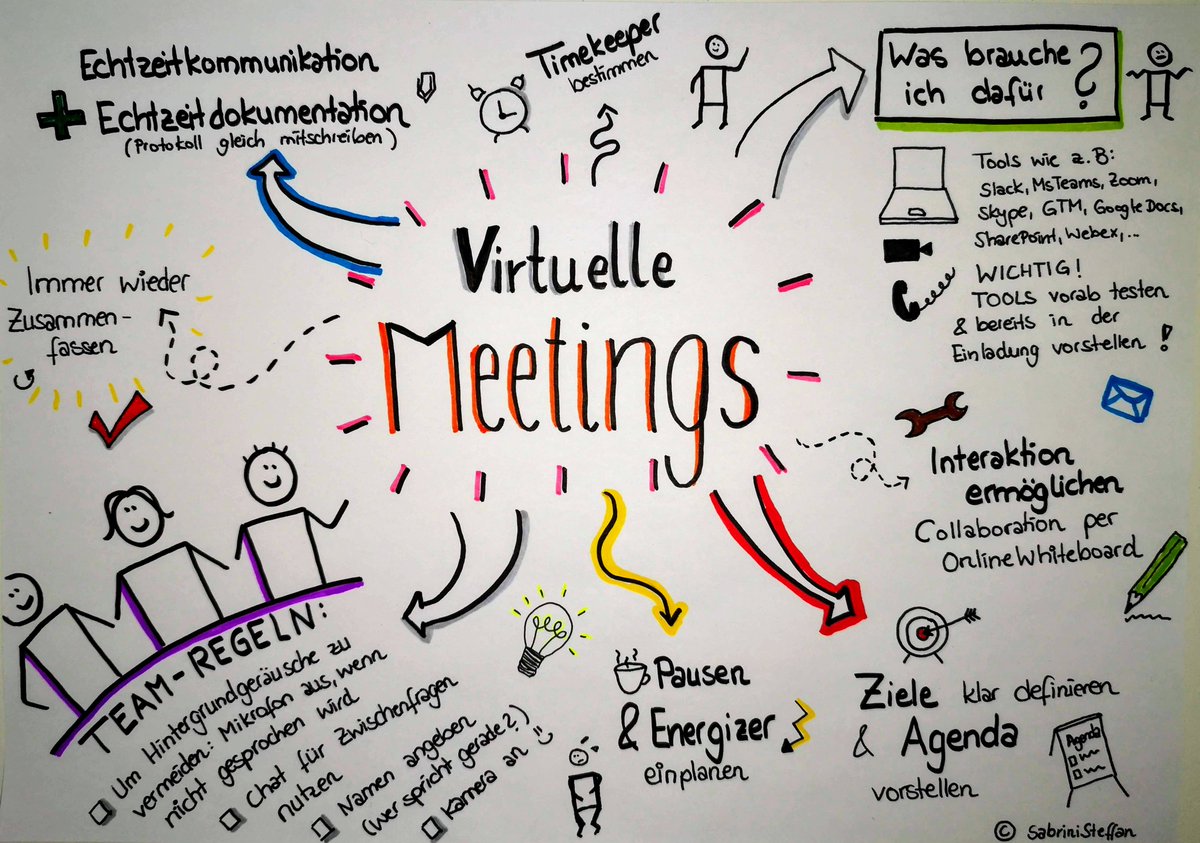 Echtzeitkommunikation
+ Echtzeitdokumentation
(Protokoll gleich mitschreiben)
Timekeeper
bestimmen
Was brauche
ich dafür ?
Tools wie z.B:
Slack, MsTeams, Zoom,
Skype, GTM, Google Docs,
SharePoint, Webex,...
WICHTIG!
TOOLS vorab testen
& bereits in der
Einladung vorstellen !
Virtuelle
Meetings
Immer wieder
Zusammen-
fassen
Interaktion
ermöglichen
Collaboration per
Online Whiteboard
TEAM-REGELN:
Um Hintergrundgeräusche zu
vermeiden: Mikrofon aus, wenn
nicht gesprochen wird
Chat für Zwischenfragen
nutzen
Namen angeben
(wer spricht gerade?)
Kamera an
Pausen
& Energizer
einplanen
Ziele klar definieren
& Agenda
vorstellen
Agenda
© SabriniSteffan